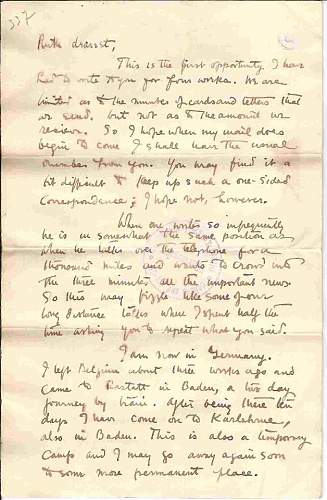 337
Ruth dearest,
This is the first opportunity I have
had to write to you for four weeks. We are
limited as to the number of cards and letters that
we send, but not as to the amount we
receive. So I hope when my mail does
begin to come I shall have the usual
number from you. You may find it a
bit difficult to keep up such a one-sided
correspondence; I hope not, however.
When one writes so infrequently
he is in somewhat the same position as
when he talks over the telephone for a
thousand miles and wants to crowd into
the three minutes all the important news.
So this may fizzle like some of our
long distance talks when I spent half the
time asking you to repeat what you said.
I am now in Germany.
I left Belgium about three weeks ago and
came to Rastatt in Baden, a two day
journey by train. After being there ten
days I have come on to Karlsruhe,
also in Baden. This is also a temporary
camp and I may go away again soon
to some more permanent place.